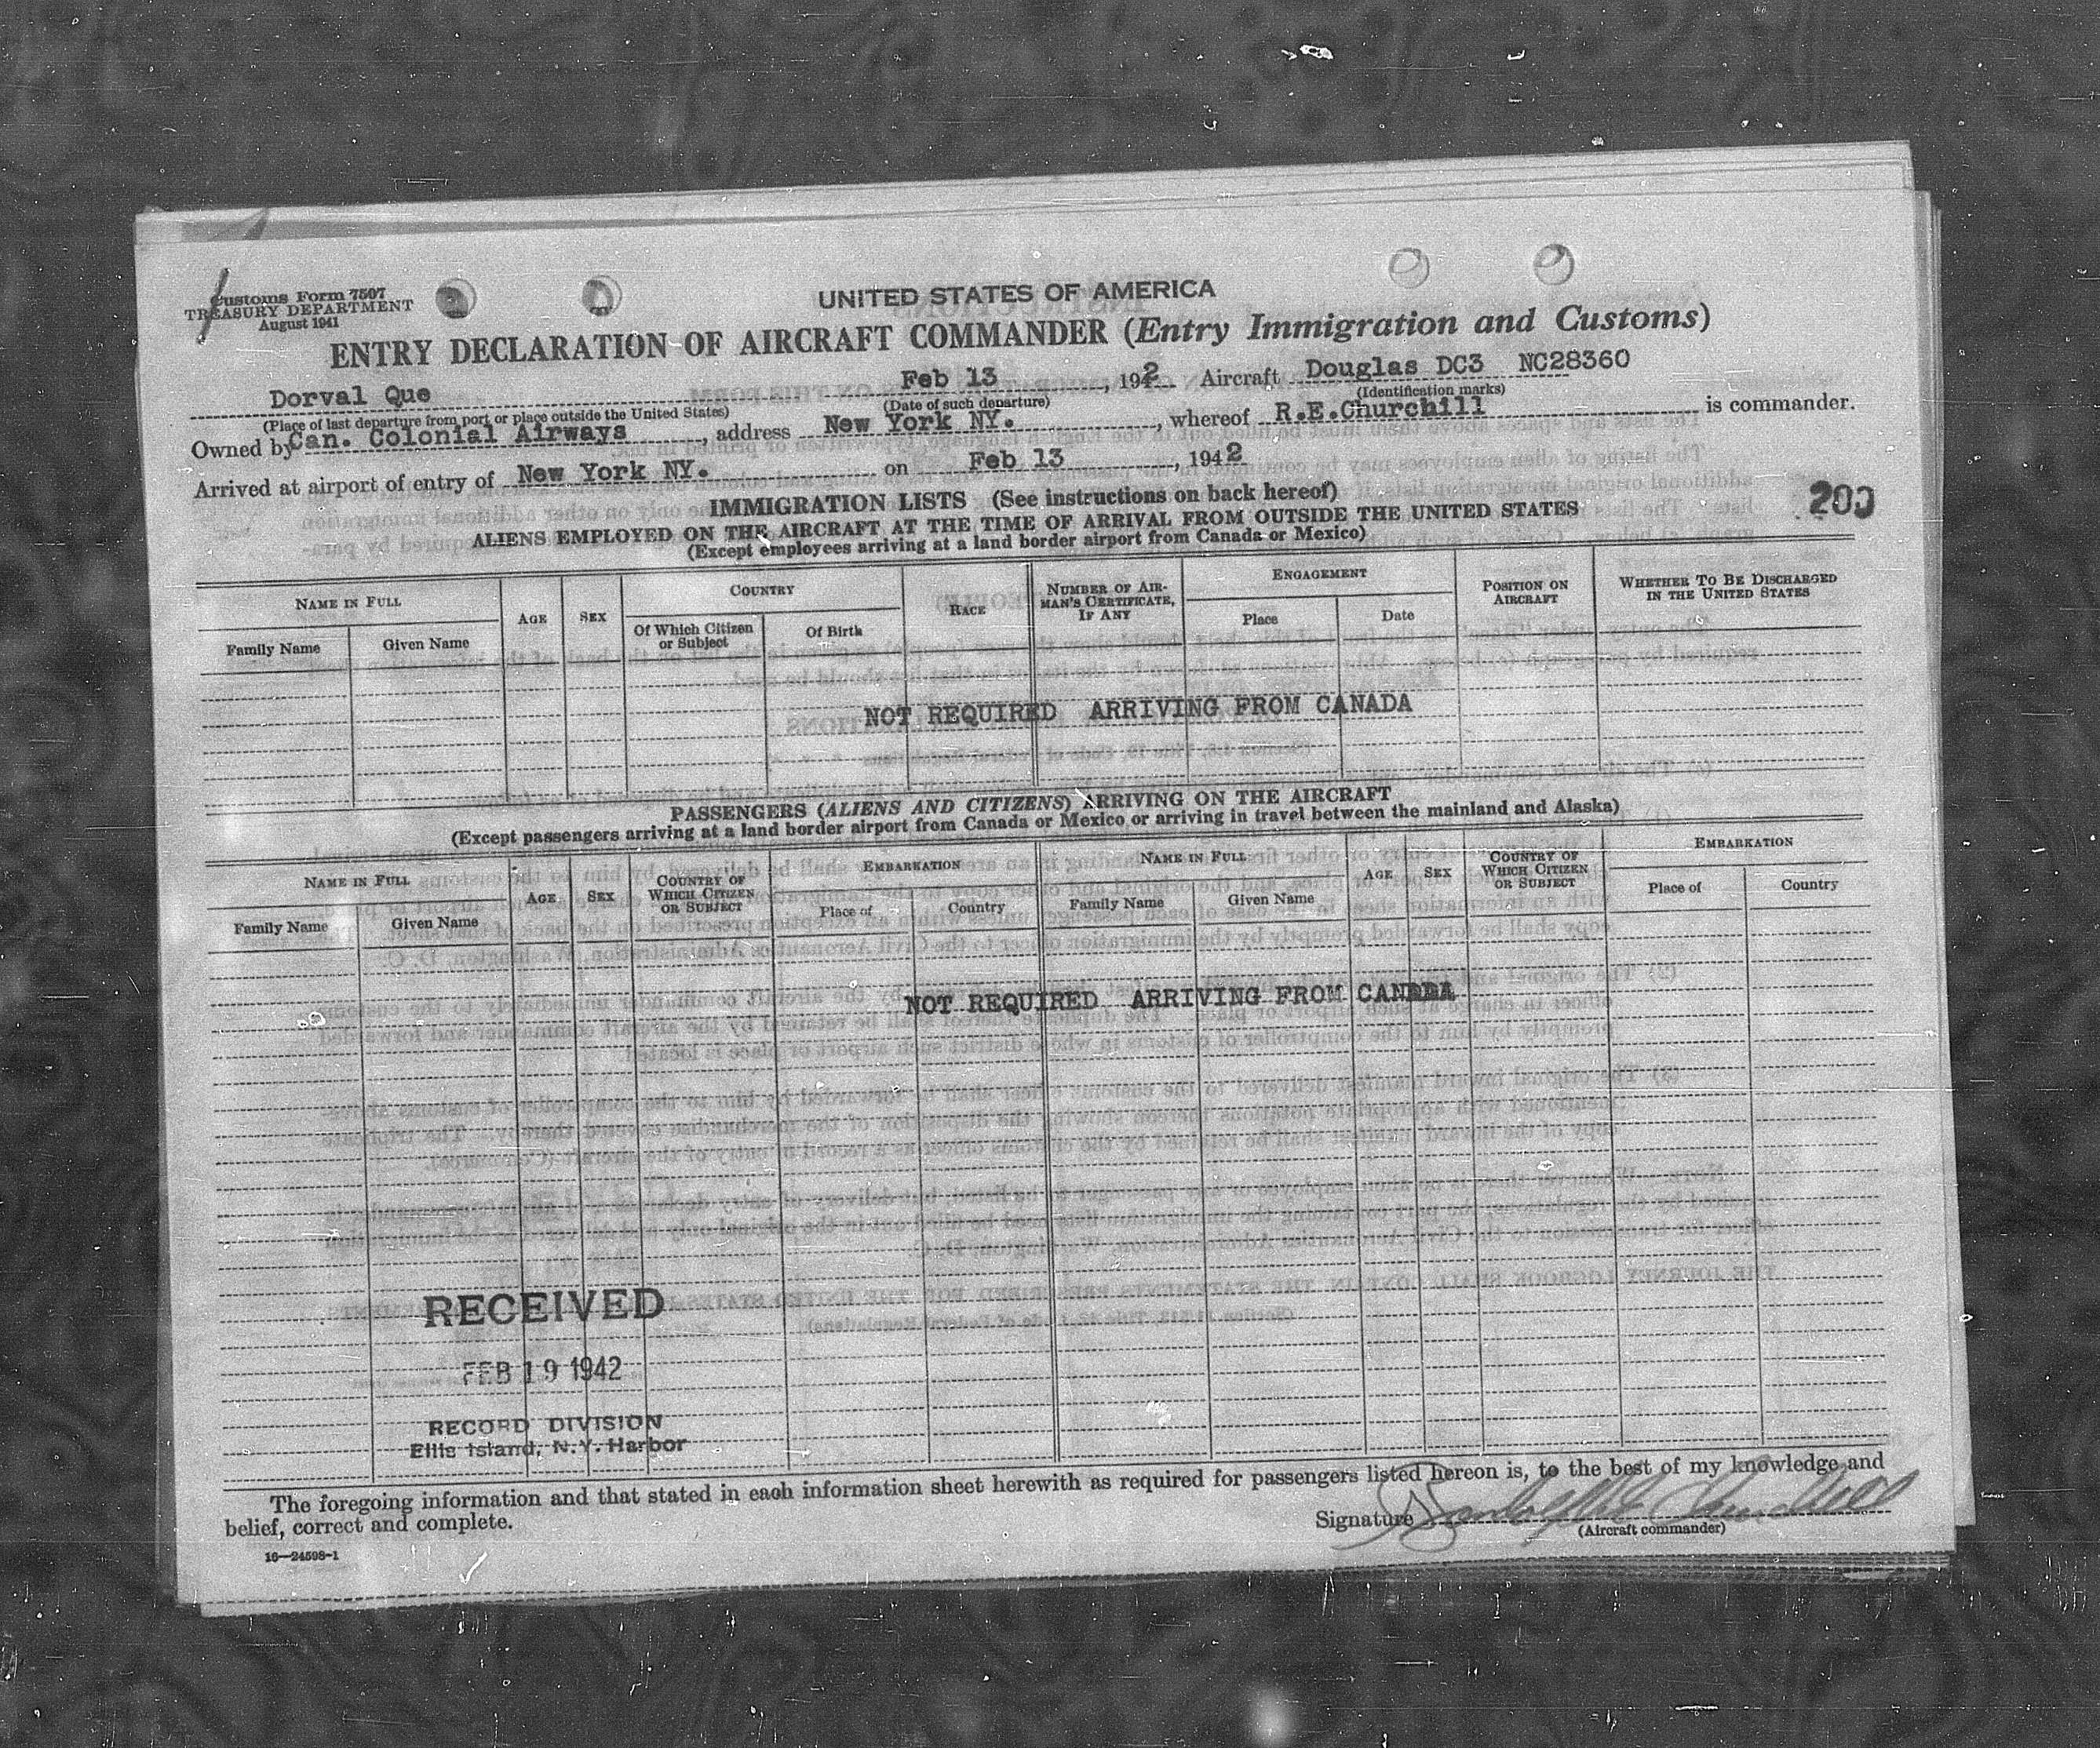 Customs Form 7507
TREASURY DEPARTMENT
August 1941
UNITED STATES OF AMERICA
ENTRY DECLARATION OF AIRCRAFT COMMANDER (Entry Immigration and Customs)
Dorval Que Feb 13, 1942 Aircraft Douglas DC3 NC28360
(Place of last departure from port or place outside the United States) (Date of such departure) (Identification marks)
Owned by Can. Colonial Airways, address New York NY., whereof R.E.Churchill is commander.
Arrived at airport of entry of New York NY. on Feb 13, 1942
200
IMMIGRATION LISTS (See instructions on back hereof)
ALIENS EMPLOYED ON THE AIRCRAFT AT THE TIME OF ARRIVAL FROM OUTSIDE THE UNITED STATES
(Except employees arriving at a land border airport from Canada or Mexico)
NAME IN FULL AGE SEX COUNTRY RACE NUMBER OF AIRMAN'S CERTIFICATE, IF ANY ENGAGEMENT POSITION ON AIRCRAFT WHETHER TO BE DISCHARGED IN THE UNITED STATES
Family Name Given Name Of Which Citizen or Subject Of Birth Place Date
NOT REQUIRED ARRIVING FROM CANADA
PASSENGERS (ALIENS AND CITIZENS) ARRIVING ON THE AIRCRAFT
(Except passengers arriving at a land border airport from Canada or Mexico or arriving in travel between the mainland and Alaska)
NAME IN FULL AGE SEX COUNTRY OF WHICH CITIZEN OR SUBJECT EMBARKATION NAME IN FULL AGE SEX COUNTRY OF WHICH CITIZEN OR SUBJECT EMBARKATION
Family Name Given Name Place of Country Family Name Given Name Place of Country
NOT REQUIRED ARRIVING FROM CANADA
RECEIVED
FEB 19 1942
RECORD DIVISION
Ellis Island, N.Y. Harbor
The foregoing information and that stated in each information sheet herewith as required for passengers listed hereon is, to the best of my knowledge and
belief, correct and complete.
Signature Churchill
(Aircraft commander)
16—24598-1